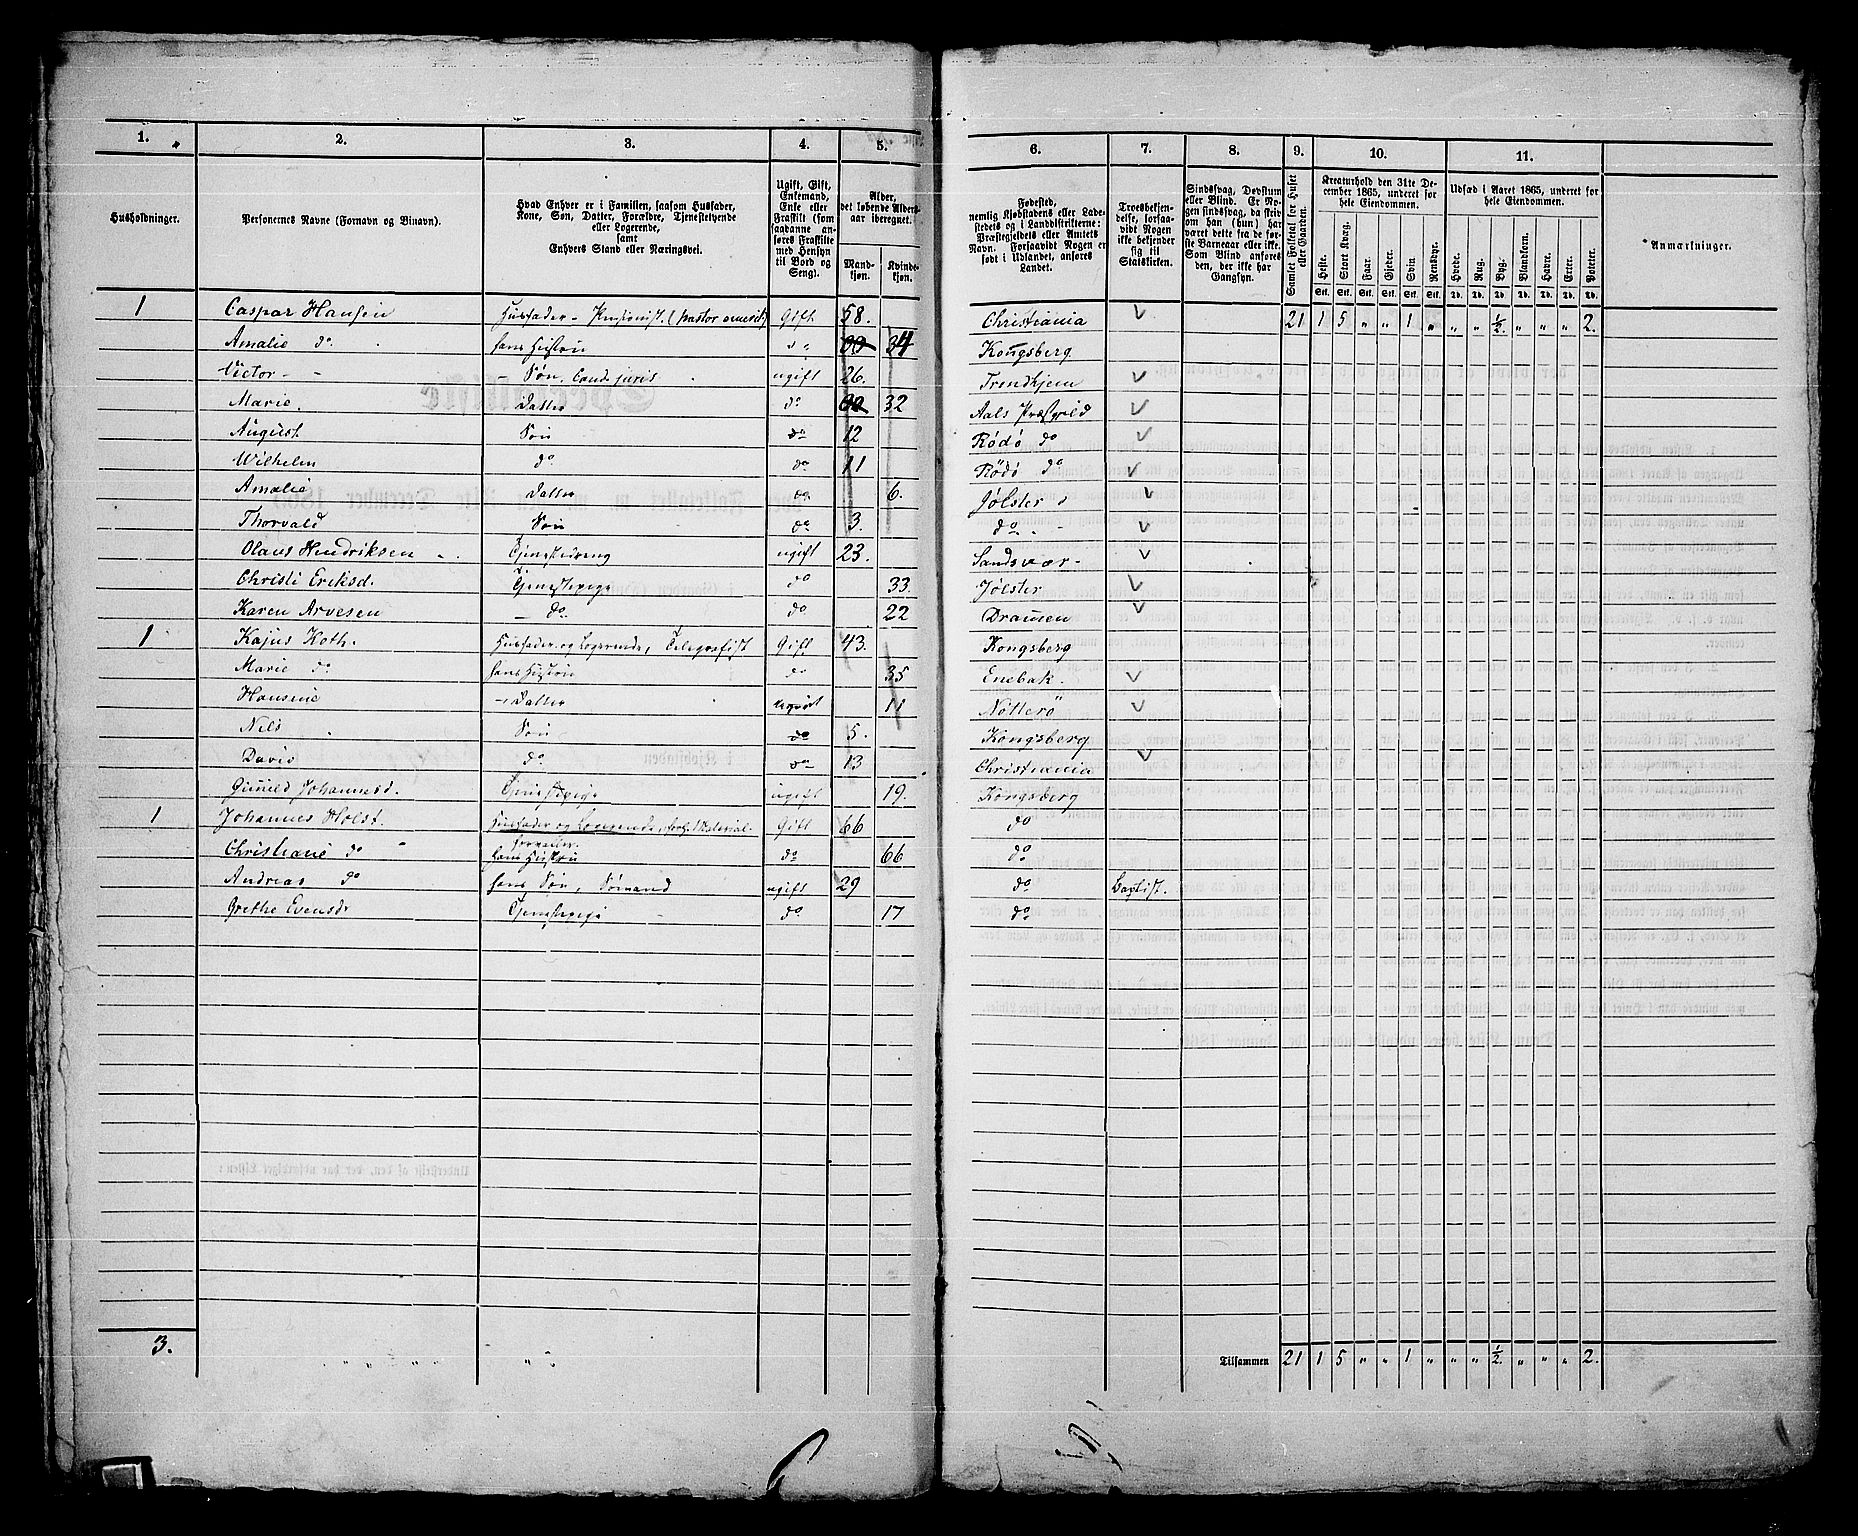 1. 2. 3. 4. 5. 6. 7. 8. 9. 10. 11.
Husholdninger.
Personernes Navne (Fornavn og Binavn).
Hvad Enhver er i Familien, saasom Husfader, Kone, Søn, Datter, Forældre, Tjenestetyende eller Logerende, samt Enhvers Stand eller Næringsvei.
Ugift, Gift, Enkemand, Enke eller Fraskilt (som saadanne anføres Fraskilte med Hensyn til Bord og Seng).
Alder, det løbende Aldersaar iberegnet.
Mandkjøn. Kvindekjøn.
Fødested, nemlig Kjøbstadens eller Ladestedets og i Landdistrikterne: Præstegjeldets eller Amtets Navn. Forsaavidt Nogen er født i Udlandet, anføres Landet.
Troesbekjendelse, forsaavidt Nogen ikke bekjender sig til Statskirken.
Sindssvag, Døvstum eller Blind. Er Nogen sindssvag, da skriv om han (hun) har været dette fra de første Barneaar eller ikke. Som Blind anføres den, der ikke har Gangsyn.
Samlet Folketal for Huset eller Gaarden.
Kreaturhold den 31te December 1865, underet for hele Eiendommen.
Heste. Stort Kvæg. Faar. Gjeder. Svin. Rensdyr.
Stk. Stk. Stk. Stk. Stk. Stk.
Udsæd i Aaret 1865, underet for hele Eiendommen.
Hvede. Rug. Byg. Blandkorn. Havre. Erter. Poteter.
Td. Td. Td. Td. Td. Td. Td.
Anmærkninger.
1 Caspar Hansen Husfader - Pensionist. (Pastor emerit) Gift 58. Christiania 21 1 5 „ „ 1 „ „ „ ½ „ „ „ 2.
Amalie do. hans Hustru do 34 Kongsberg
Victor - - - Søn, Cand. juris ugift 26. Trondhjem
Marie. Datter do 32 Aals Præstgjeld
August. Søn do 12 Rödö do
Wilhelm do. do 11 Rödö do
Amalie Datter do 6. Jølster
Thorvald Søn do 3. do
Olaus Hendriksen Tjenestedreng ugift 23. Sandsvær
Christi Eriksd. Tjenestepige do 33. Jølster
Karen Arvesen - do. do 22 Drammen
1 Kajus Koth. Husfader og Logerende, Telegrafist Gift 43. Kongsberg
Marie do hans Hustru do 35 Enebak.
Hansine - Datter ugift 11 Nötterö
Nils Søn do 5. Kongsberg
David do do 13 Christiania
Gunild Johannesd. Tjenestepige ugift 19. Kongsberg
1 Johannes Holst. Husfader og Logerende, Material- Gift 66 do
Christiane do hans Hustru do 66 do
Andreas do hans Søn, Sømand ugift 29 do Baptist.
Grethe Evensdr Tjenestepige do 17 do
3. „ „ „ „ „ „ „ Tilsammen 21 1 5 „ „ 1 „ „ „ ½. „ „ „ 2.